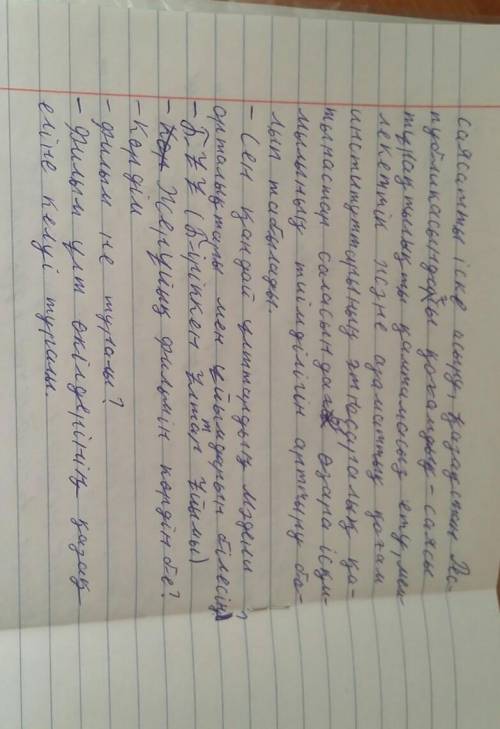 саясатты іске асыру, Қазақстан Рес-
публикасындағы қоғамдық-саяси
тұрақтылықты қамтамасыз ету, мем
лекеттік және азаматтық қоғам
институттарының этносаралық қа-
тынастар саласындағы өзара ісқи-
мылының тиімділігін арттыру бо-
лып табылады.
- Сен қандай ұлттұрдың мәдени
орталықтары мен ұйымдұрын білесің?
- БҰҰ (Біріпкен Ұлттар Ұйымы)
- Жерұйық фильмін көрдің бе?
- Көрдім
- Фильм не туралы?
- Фильм ұлт өкілдерінің қазақ
еліне келуі туралы.